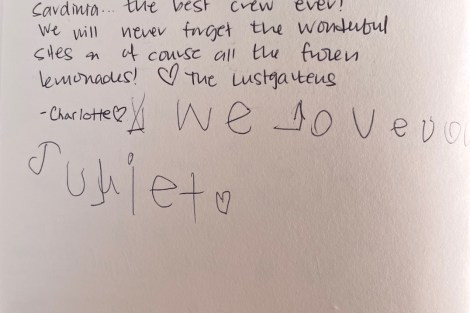 Sardinia... the best crew ever!
We will never forget the wonderful
sites & of course all the frozen
lemonades! ♡ The Lustgartens
-Charlotte♡ We love you
Juliet ♡